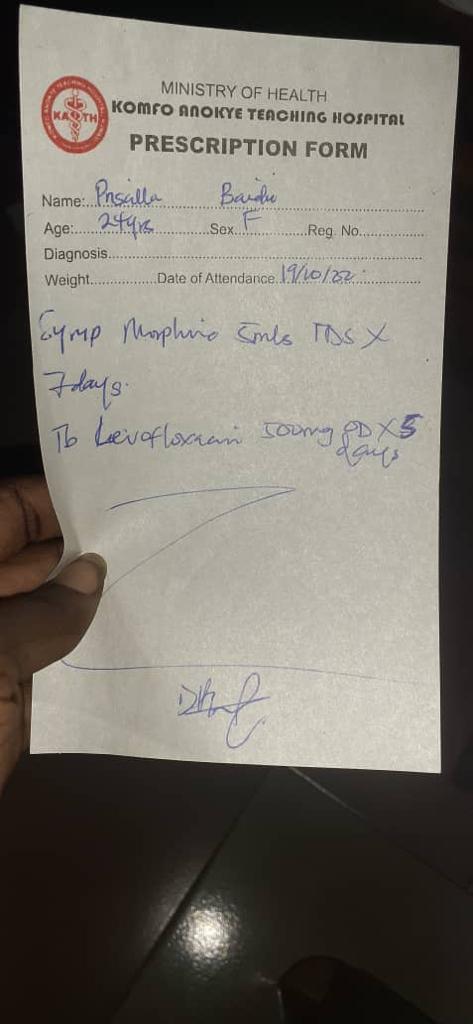 KATH
MINISTRY OF HEALTH
KOMFO ANOKYE TEACHING HOSPITAL
PRESCRIPTION FORM
Name: Priscilla Baidu
Age: 24yrs Sex F Reg. No.
Diagnosis
Weight Date of Attendance 19/10/22
Syrup Morphine 5mls TDS X
7days.
Tb Levofloxacin 500mg OD X 5
days